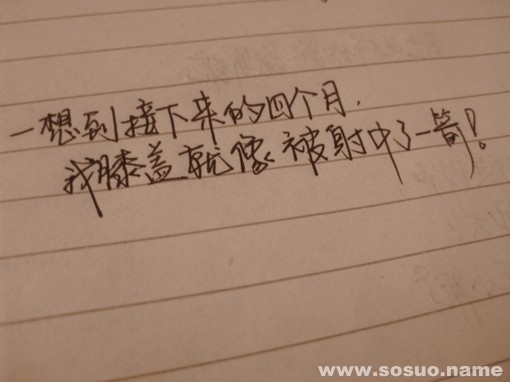 一想到接下来的四个月,
我膝盖就像被射中了一箭!
www.sosuo.name